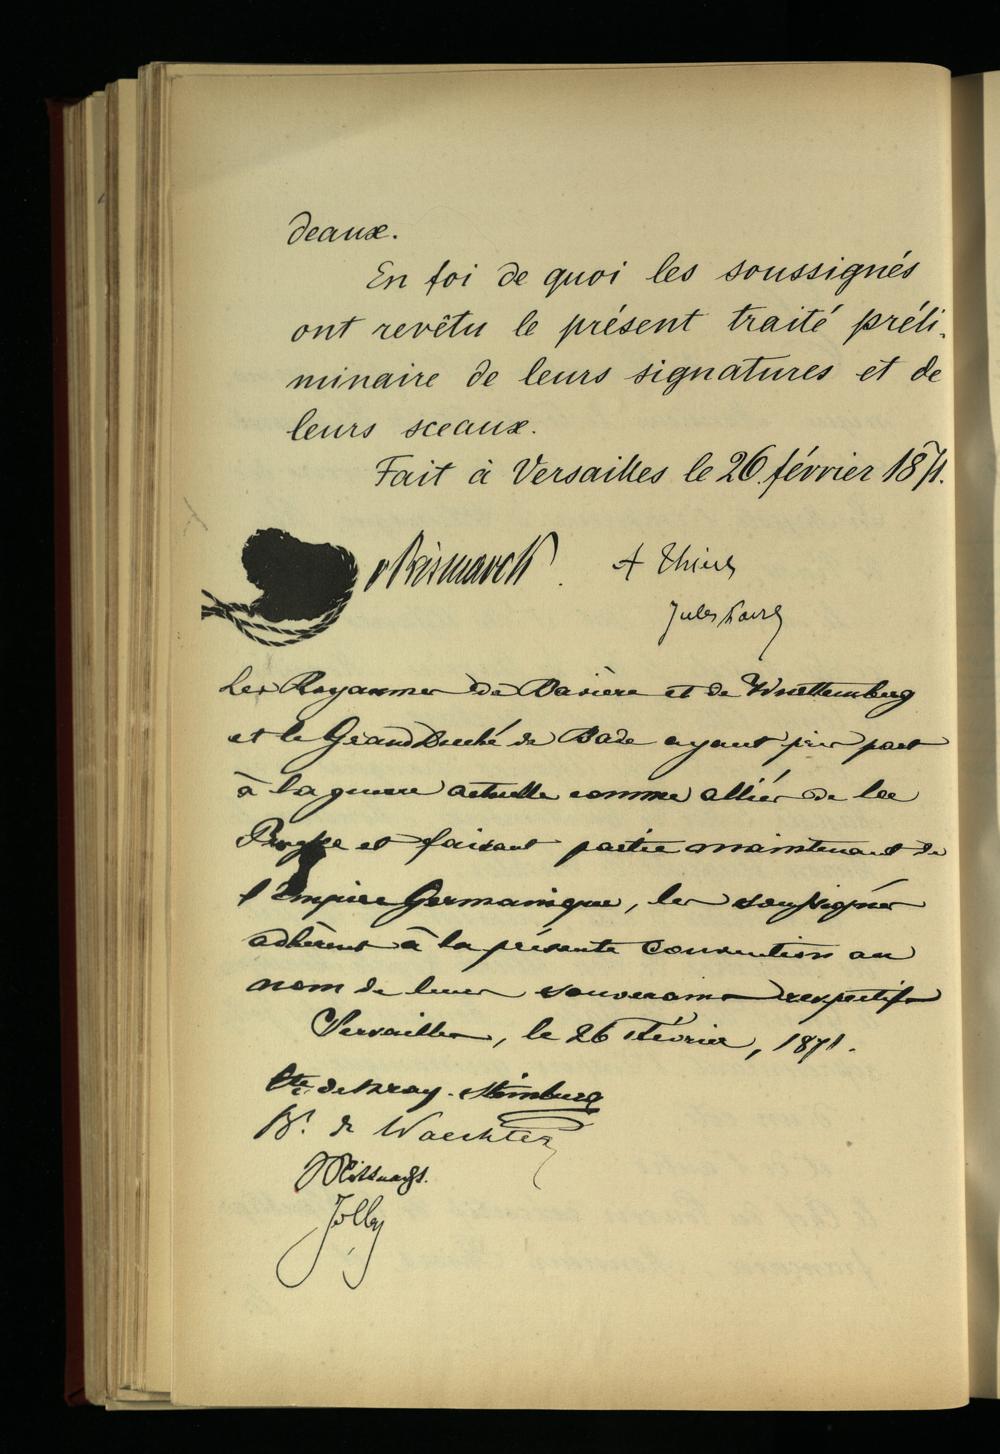 deaux.
En foi de quoi les soussignés
ont revêtu le présent traité préli-
minaire de leurs signatures et de
leurs sceaux.
Fait à Versailles le 26 février 1871.
v Bismarck. A Thiers
Jules Favre
Les Royaumes de Bavière et de Wurttemberg
et le Grand Duché de Bade ayant pris part
à la guerre actuelle comme alliés de la
Prusse et faisant partie maintenant de
l'Empire Germanique, les soussignés
adhèrent à la présente convention au
nom de leurs souverains respectifs
Versailles, le 26 Février, 1871.
Cte. de Bray-Steinburg
Bn. de Waechter
Mittnacht.
Jolly